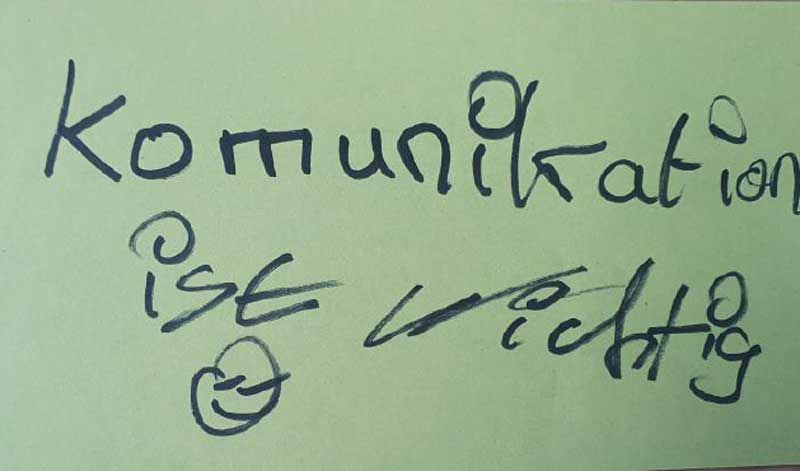 Komunikation
ist wichtig